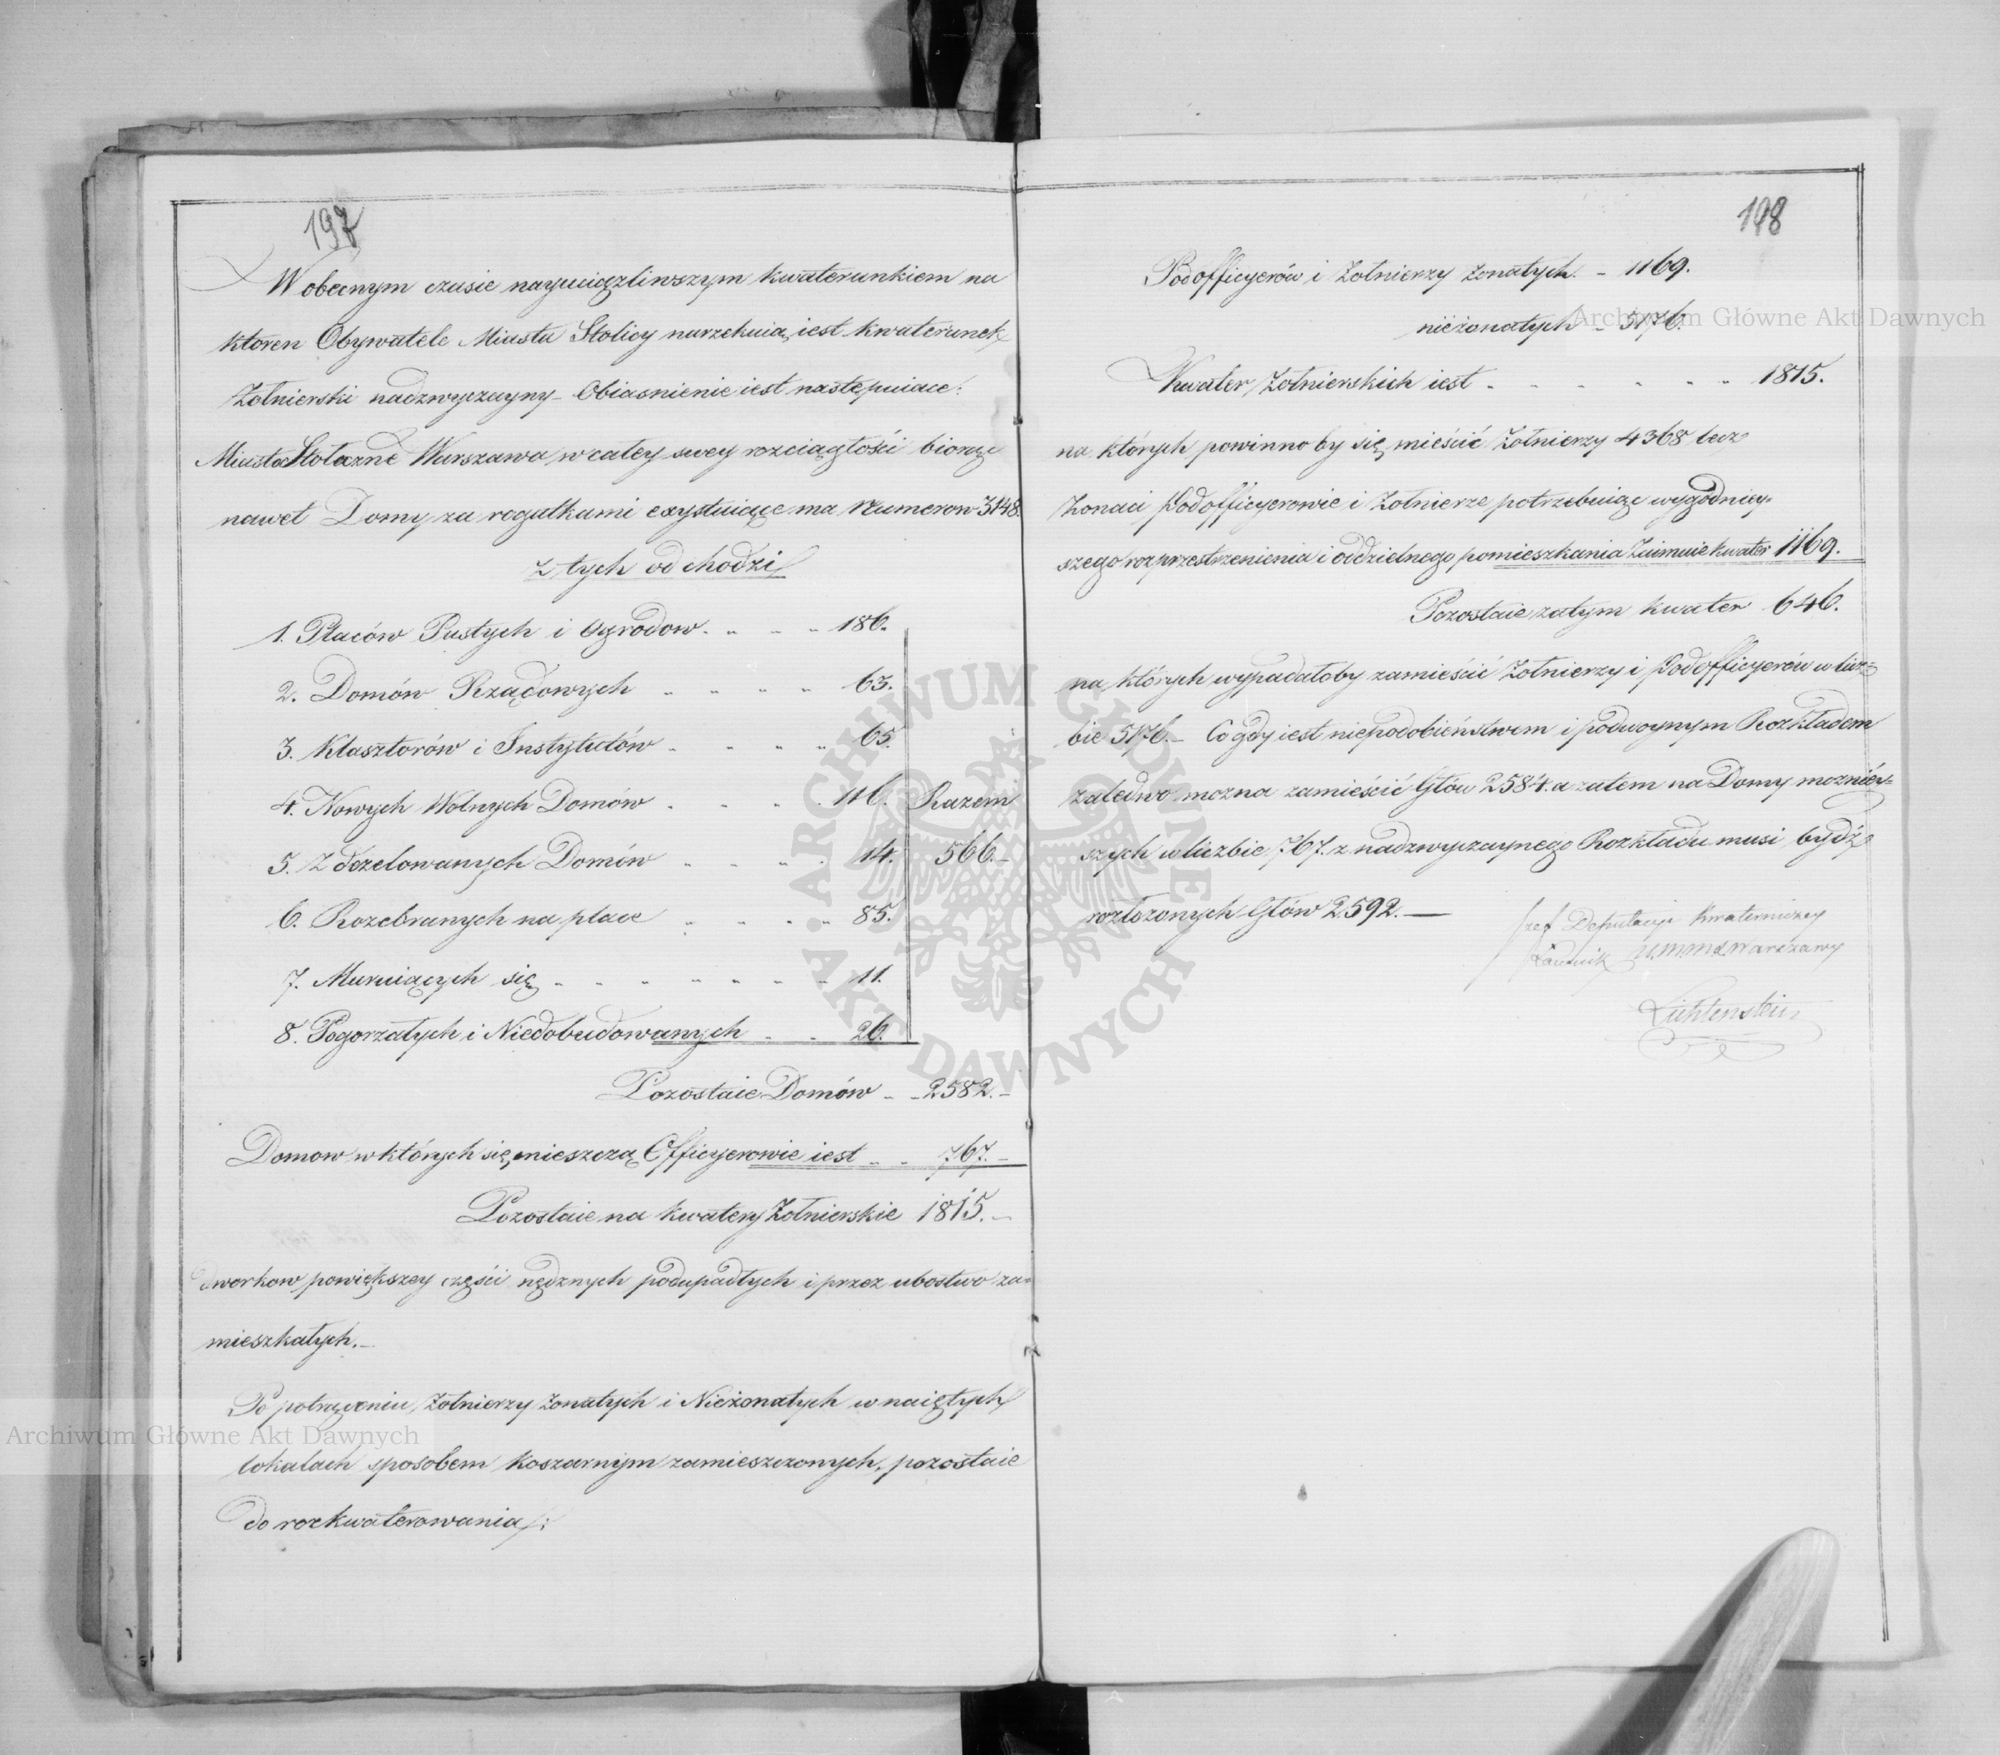 197
W obecnym czasie nayuciążliwszym kwaterunkiem na
ktoren Obywatele Miasta Stolicy narzekaią, iest kwaterunek
Żołnierski nadzwyczayny - Obiasnienie iest następuiące:
Miasto Stołeczne Warszawa w całey swey rozciągłości biorąc
nawet Domy za rogatkami exystuiące ma Numerow 3148.
z tych odchodzi
1. Placów Pustych i Ogrodow - - - 186.
2. Domów Rządowych - - - - 63.
3. Klasztorów i Instytutów - - - - 65.
4. Nowych Wolnych Domów - - - - 116. Razem
5. Zdezelowanych Domów - - - - 14. 566.-
6. Rozebranych na place - - - - 85.
7. Muruiących się - - - - - - - 11.
8. Pogorzałych i Niedobudowanych - - 26.
Pozostaie Domów - - 2582.-
Domow w których się mieszczą Officyerowie iest - - 767.-
Pozostaie na kwatery Żołnierskie 1815.-
dworkow powiększey części nędznych podupadłych i przez ubostwo za=
mieszkałych.-
Po potrąceniu Żołnierzy żonatych i Nieżonatych w naiętych
lokalach sposobem koszarnym zamieszczonych, pozostaie
do rozkwaterowania:
198
Podofficyerów i Żołnierzy żonatych. - 1169.
nieżonatych - 5176.
Kwater Żołnierskich iest - - - - - - 1815.
na których powinno by się mieścić Żołnierzy 4368 lecz
żonaci Podofficyerowie i Żołnierze potrzebuiąc wygodniey=
szego rozprzestrzenienia i oddzielnego pomieszkania Zaimuie kwater 1169.
Pozostaie zatym kwater 646.
na których wypadałoby zamieścić Żołnierzy i Podofficyerów w licz=
bie 5176.- Co gdy iest niepodobieństwem i podwoynym Rozkładem
zaledwo można zamieścić Głów 2584. a zatem na Domy możniey=
szych w liczbie 767. z nadzwyczaynego Rozkładu musi bydź
rozłożonych Głów 2592.-
Szef Deputacyi Kwaterniczey
Radnik Warszawy
Lichtenstein
Archiwum Główne Akt Dawnych
Archiwum Główne Akt Dawnych
ARCHIWUM GŁÓWNE AKT DAWNYCH